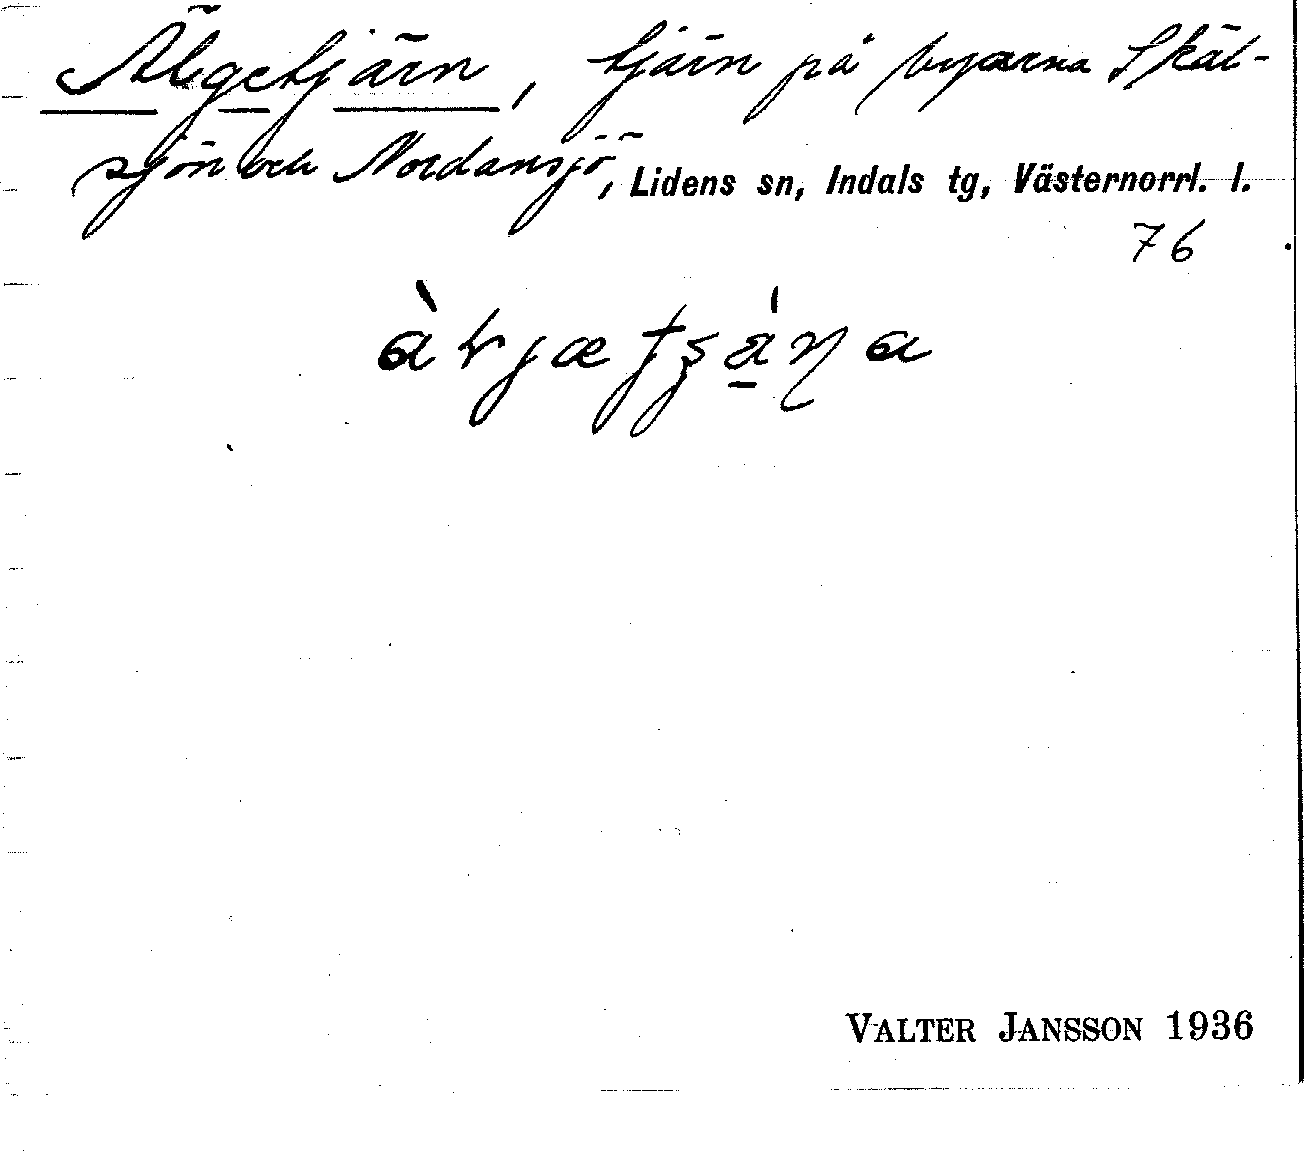 Älgetjärn, tjärn på byarna Skäl-
sjön och Nordansjö, Lidens sn, Indals tg, Västernorrl. l.
76
VALTER JANSSON 1936